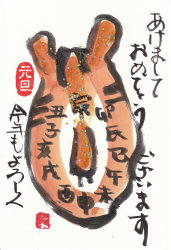 あけまして
おめでとう
ございます
元旦
寅
卯辰巳午未
申酉
戌亥子丑
今年もよろしく